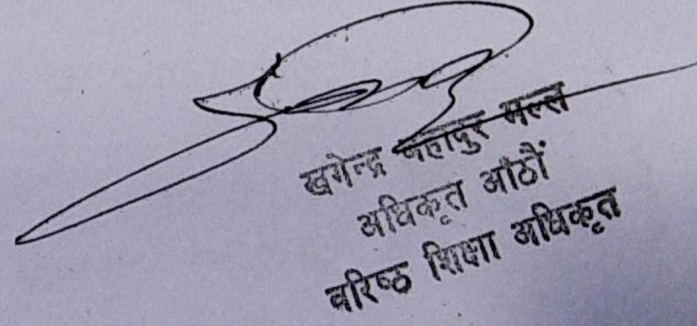 खगेन्द्र बहादुर मल्ल
अधिकृत आठौं
वरिष्ठ शिक्षा अधिकृत